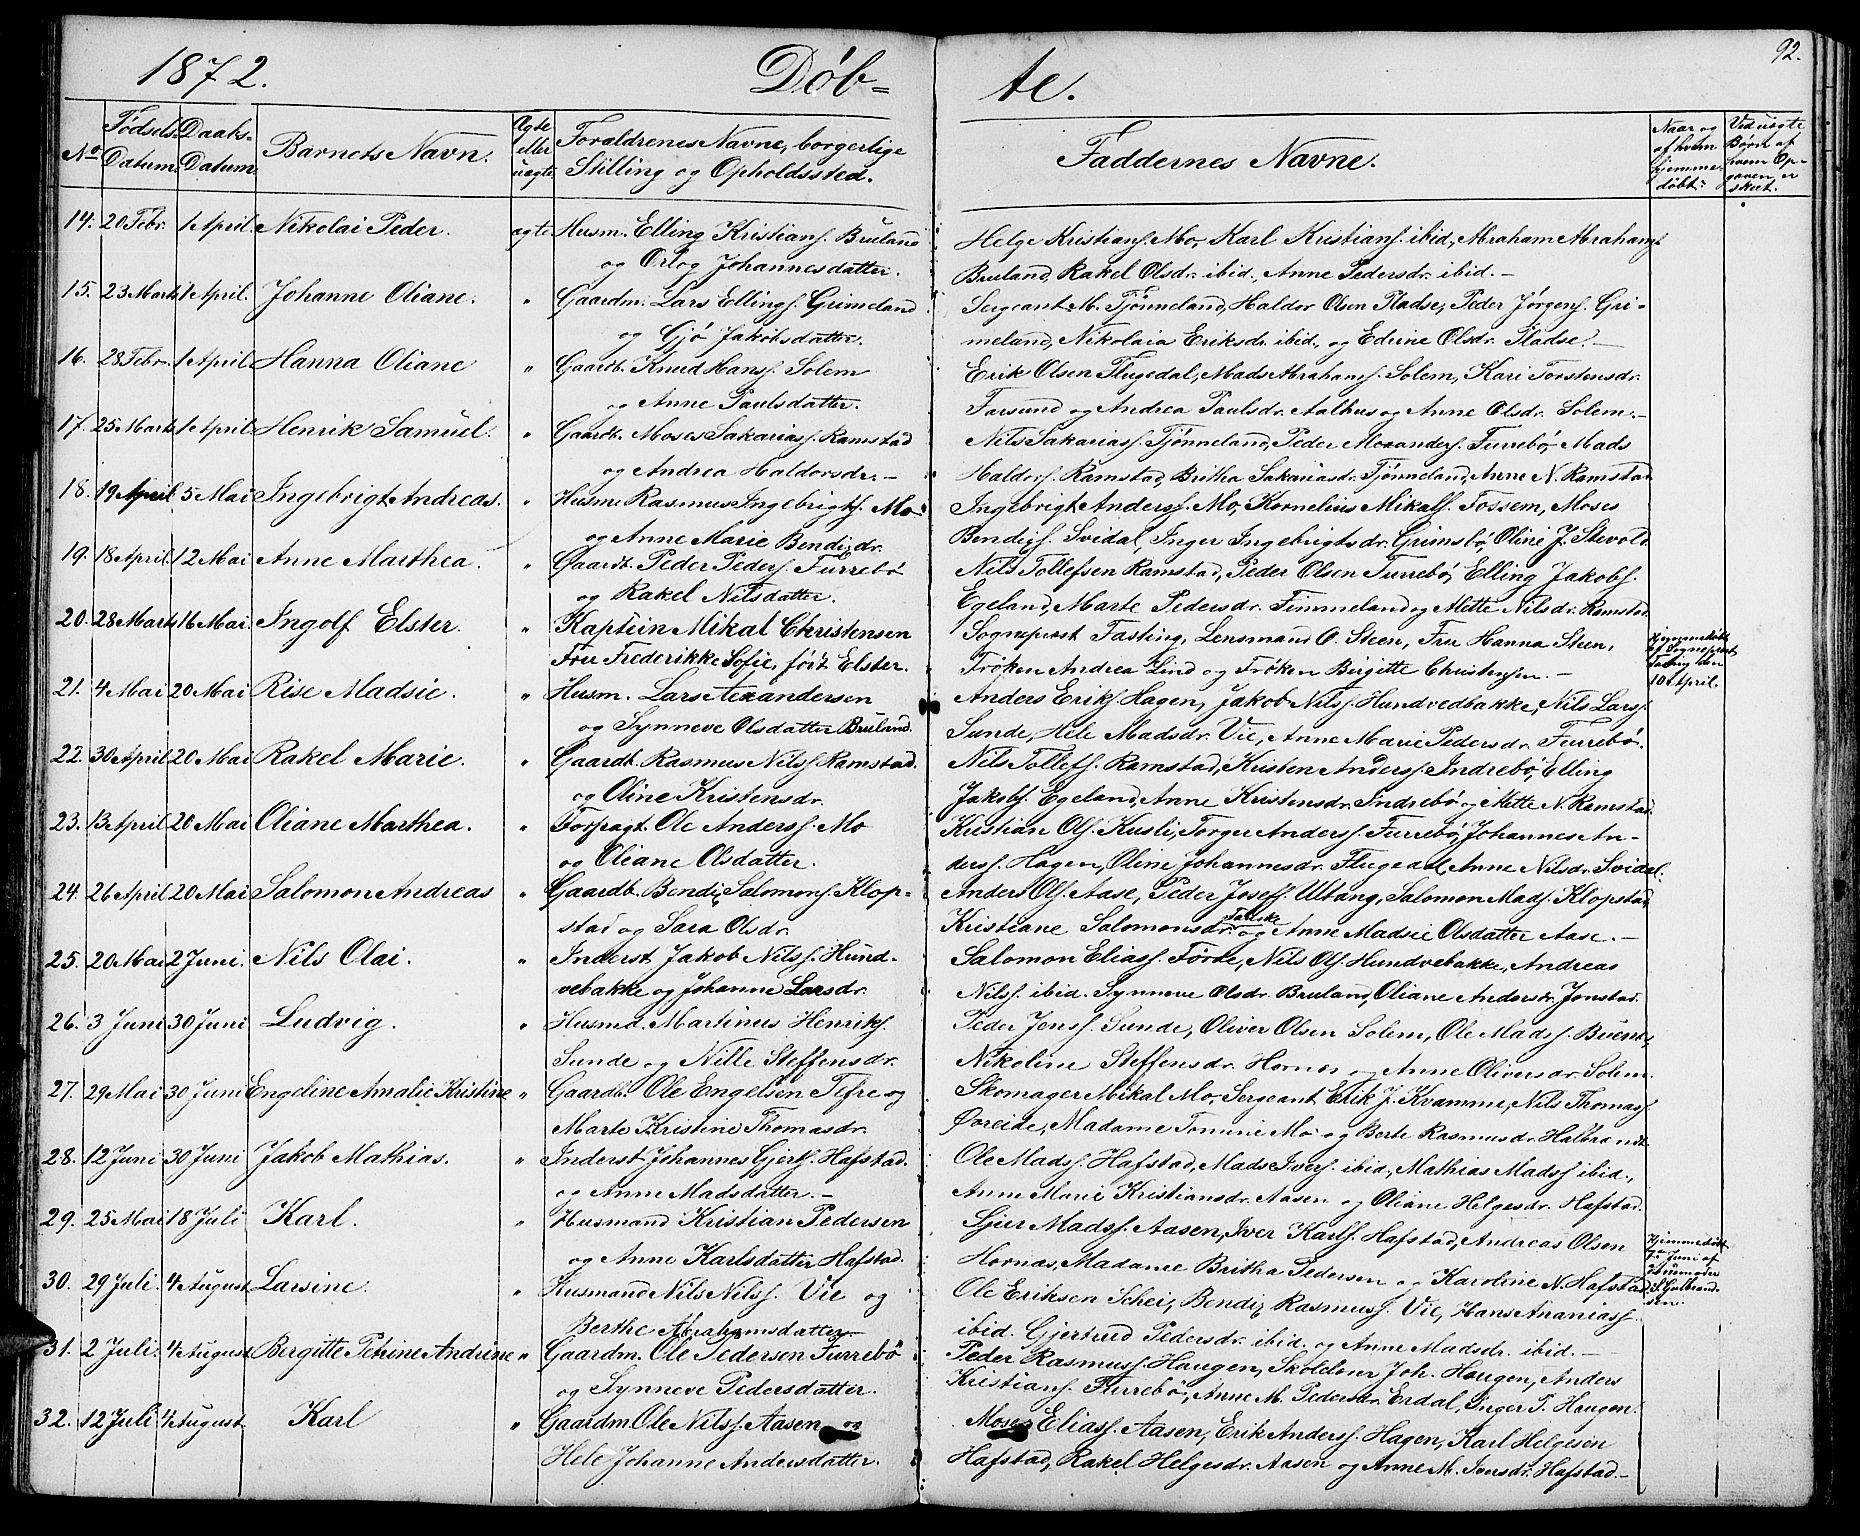 1872. Døb- te. 92.
No Fødsels-Datum. Daabs-Datum. Barnets Navn. Ægte eller uægte Forældrenes Navne, borgerlige Stilling og Opholdssted. Faddernes Navne. Naar og af hvem hjemmedøbt? Ved uægte Børn af hvem Opgaven er skeet.
14. 20 Febr. 1 April. Nikolai Peder. ægte Husm. Elling Kristians. Bruland Helge Kristians. Mo, Karl Kristians. ibid, Abraham Abrahams.
og Orlog Johannesdatter. Bruland, Rakel Olsdr. ibid., Anne Pedersdr. ibid.-
15. 23 Marts 1 April. Johanne Oliane. " Gaardm. Lars Ellings. Grimeland Sergeant M. Tjønneland, Haldor Olsen Pladse, Peder Jørgens. Gri-
og Gjø Jakobsdatter. meland, Nikolaia Eriksdr. ibid., og Edrine Olsdr. Pladse.-
16. 28 Febr. 1 April Hanna Oliane " Gaardb. Knud Hans. Solem Erik Olsen Flugedal, Mads Abrahams. Solem, Kari Torstensdr.
og Anne Paulsdatter. Farsund og Andrea Paulsdr. Aalhus og Anne Olsdr. Solem.-
17. 25 Marts 1 April Henrik Samuel. " Gaardb. Moses Sakarias. Ramstad Nils Sakarias. Tjønneland, Peder Alexanders. Furrebø, Mads
og Andrea Haldorsdr.- Haldors. Ramstad, Britha Sakariasdr. Tjønneland, Anne N. Ramstad
18. 19 April 5 Mai Ingebrigt Andreas. " Husm. Rasmus Ingebrigts. Mo Ingebrigt Anders. Mo, Kornelius Mikals. Fossem, Moses
og Anne Marie Bendixdr. Bendixs. Svidal, Inger Ingebrigtsdr. Grimsbø, Oline J. Stevold.
19. 18 April 12 Mai Anne Marthea. " Gaardb. Peder Peders. Furrebø Nils Tollefsen Ramstad, Peder Olsen Furrebø, Elling Jakobs.
og Rakel Nilsdatter. Egeland, Marte Pedersdr. Fimmeland og Mette Nilsdr. Ramstad
20. 28 Marts 16 Mai. Ingolf Elster. " Kaptein Mikal Christensen Sognepræst Tasting, Lensmand O. Steen, Fru Hanna Steen, Hjemmedøbt af Sognepræst Tasting den 10de April.
Fru Frederikke Sofie, født Elster. Frøken Andrea Lind og Frøken Birgitte Christensen.-
21. 4 Mai 20 Mai Rise Madsie. " Husm. Lars Alexandersen Anders Eriks. Hagen, Jakob Nils. Hundvedbakke, Nils Lars.
og Synneve Olsdatter Bruland. Sunde, Hele Madsdr. Vie, Anne Marie Pedersdr. Furrebø.
22. 30 April 20 Mai Rakel Marie. " Gaardb. Rasmus Nils. Ramstad. Nils Tollefs. Ramstad, Kristen Anders. Indrebø, Elling
og Oline Kristensdr. Jakobs. Egeland, Anne Kristensdr. Indrebø og Mette N. Ramstad.
23. 13 April 20 Mai Oliane Marthea. " Forpagt. Ole Anders. Mo Kristian Ols. Kusli, Torger Anders. Furrebø, Johannes An-
og Oliane Olsdatter. ders. Hagen, Oline Johannesdr. Flugedal, Anne Nilsdr. Svidal.
24. 26 April 20 Mai Salomon Andreas " Gaardb. Bendix Salomons. Klop- Anders Ols. Aase, Peder Josefs. Ultang, Salomon Mads. Klopstad,
stad og Sara Olsdr. Kristiane Salomonsdr. og Anne Madsie Olsdatter Aase.-
25. 20 Mai 2 Juni. Nils Olai. " Inderst Jakob Nils. Hund- Salomon Elias. Førde, Nils Ols. Hundvebakke, Andreas
vebakke og Johanne Larsdr. Nils. ibid. Synneve Olsdr. Bruland, Oliane Andersdr. Jonstad.
26. 3 Juni 30 Juni Ludvig. " Husmd. Martinus Henriks. Peder Jens. Sunde, Oliver Olsen Solem, Ole Mads. Bue
Sunde og Nille Steffensdr. Nikoline Steffensdr. Hornes og Anne Oliversdr. Solem.
27. 29 Mai 30 Juni Engeline Amalie Kristine " Gaardb. Ole Engelsen Tefre og Skomager Mikal Mo, Sergeant Erik J. Kvamme, Nils Thomas.
Marte Kristine Thomasdr. Øvreide, Madame Tomine Mo og Berte Rasmusdr. Halbrandt.
28. 12 Juni 30 Juni Jakob Mathias. " Inderst Johannes Gjerts. Hafstad. Ole Mads. Hafstad, Mads Ivers. ibid, Mathias Mads. ibid.,
og Anne Madsdatter.- Anne Marie Kristiansdr. Aasen og Oliane Helgesdr. Hafstad.
29. 25 Mai 18 Juli Karl. " Husmand Kristian Pedersen Gjer Mads. Aasen, Iver Karls. Hafstad, Andreas Olsen Hjemmedøbt 7de Juni af Jordemoder S. Gulbrandsen.
og Anne Karlsdatter Hafstad. Hornæs, Madame Britha Pedersen og Karoline N. Hafstad.
30. 29 Juli 4 August Larsine. " Husmand Nils Nils. Vie og Ole Eriksen Schei, Bendix Rasmus. Vie, Hans Ananias.
Berthe Abrahamsdatter. ibid. Gjertrud Pedersdr. ibid. og Anne Madsdr. ibid.-
31. 2 Juli. 4 August Bergitte Petrine Andrine " Gaardm. Ole Pedersen Furrebø Peder Rasmus. Haugen, Skolelærer Joh. Haugen, Anders
og Synneve Pedersdatter. Kristians. Furrebø, Anne M. Pedersdr. Erdal, Inger P. Haugen.
32. 12 Juli 4 August Karl " Gaardm. Ole Nils. Aasen og Moses Elias. Aasen, Erik Anders. Hagen, Karl Helgesen
Hele Johanne Andersdatter. Hafstad, Rakel Helgesdr. Aasen og Anne M. Iversdr. Hafstad.-